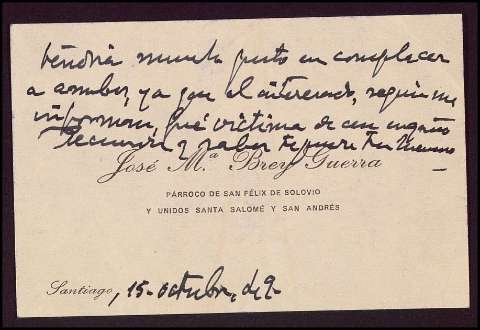 tendría mucho gusto en complacer
a ambos, ya que el interesado, según me
informan, fué víctima de un engaño
y
José Mª Brey Guerra
PÁRROCO DE SAN FÉLIX DE SOLOVIO
Y UNIDOS SANTA SALOMÉ Y SAN ANDRÉS
Santiago, 15- octubre, de